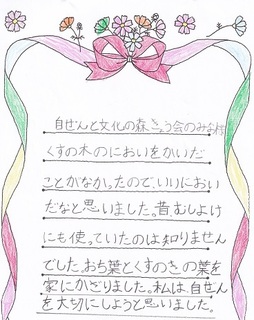 自ぜんと文化の森きょう会のみな様
くすの木のにおいをかいだ
ことがなかったので、いいにおい
だなと思いました。昔、むしよけ
にも使っていたのは知りません
でした。おち葉とくすのきの葉を
家にかざりました。私は、自ぜん
を大切にしようと思いました。